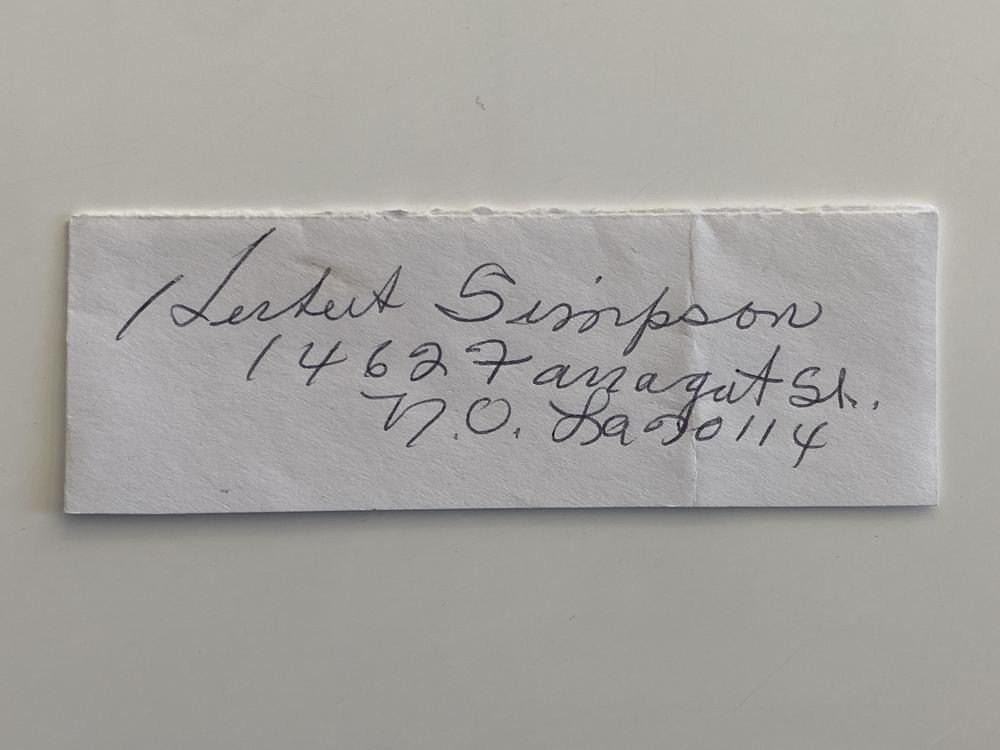 Herbert Simpson
1462 Farragut St.
N.O. La 70114